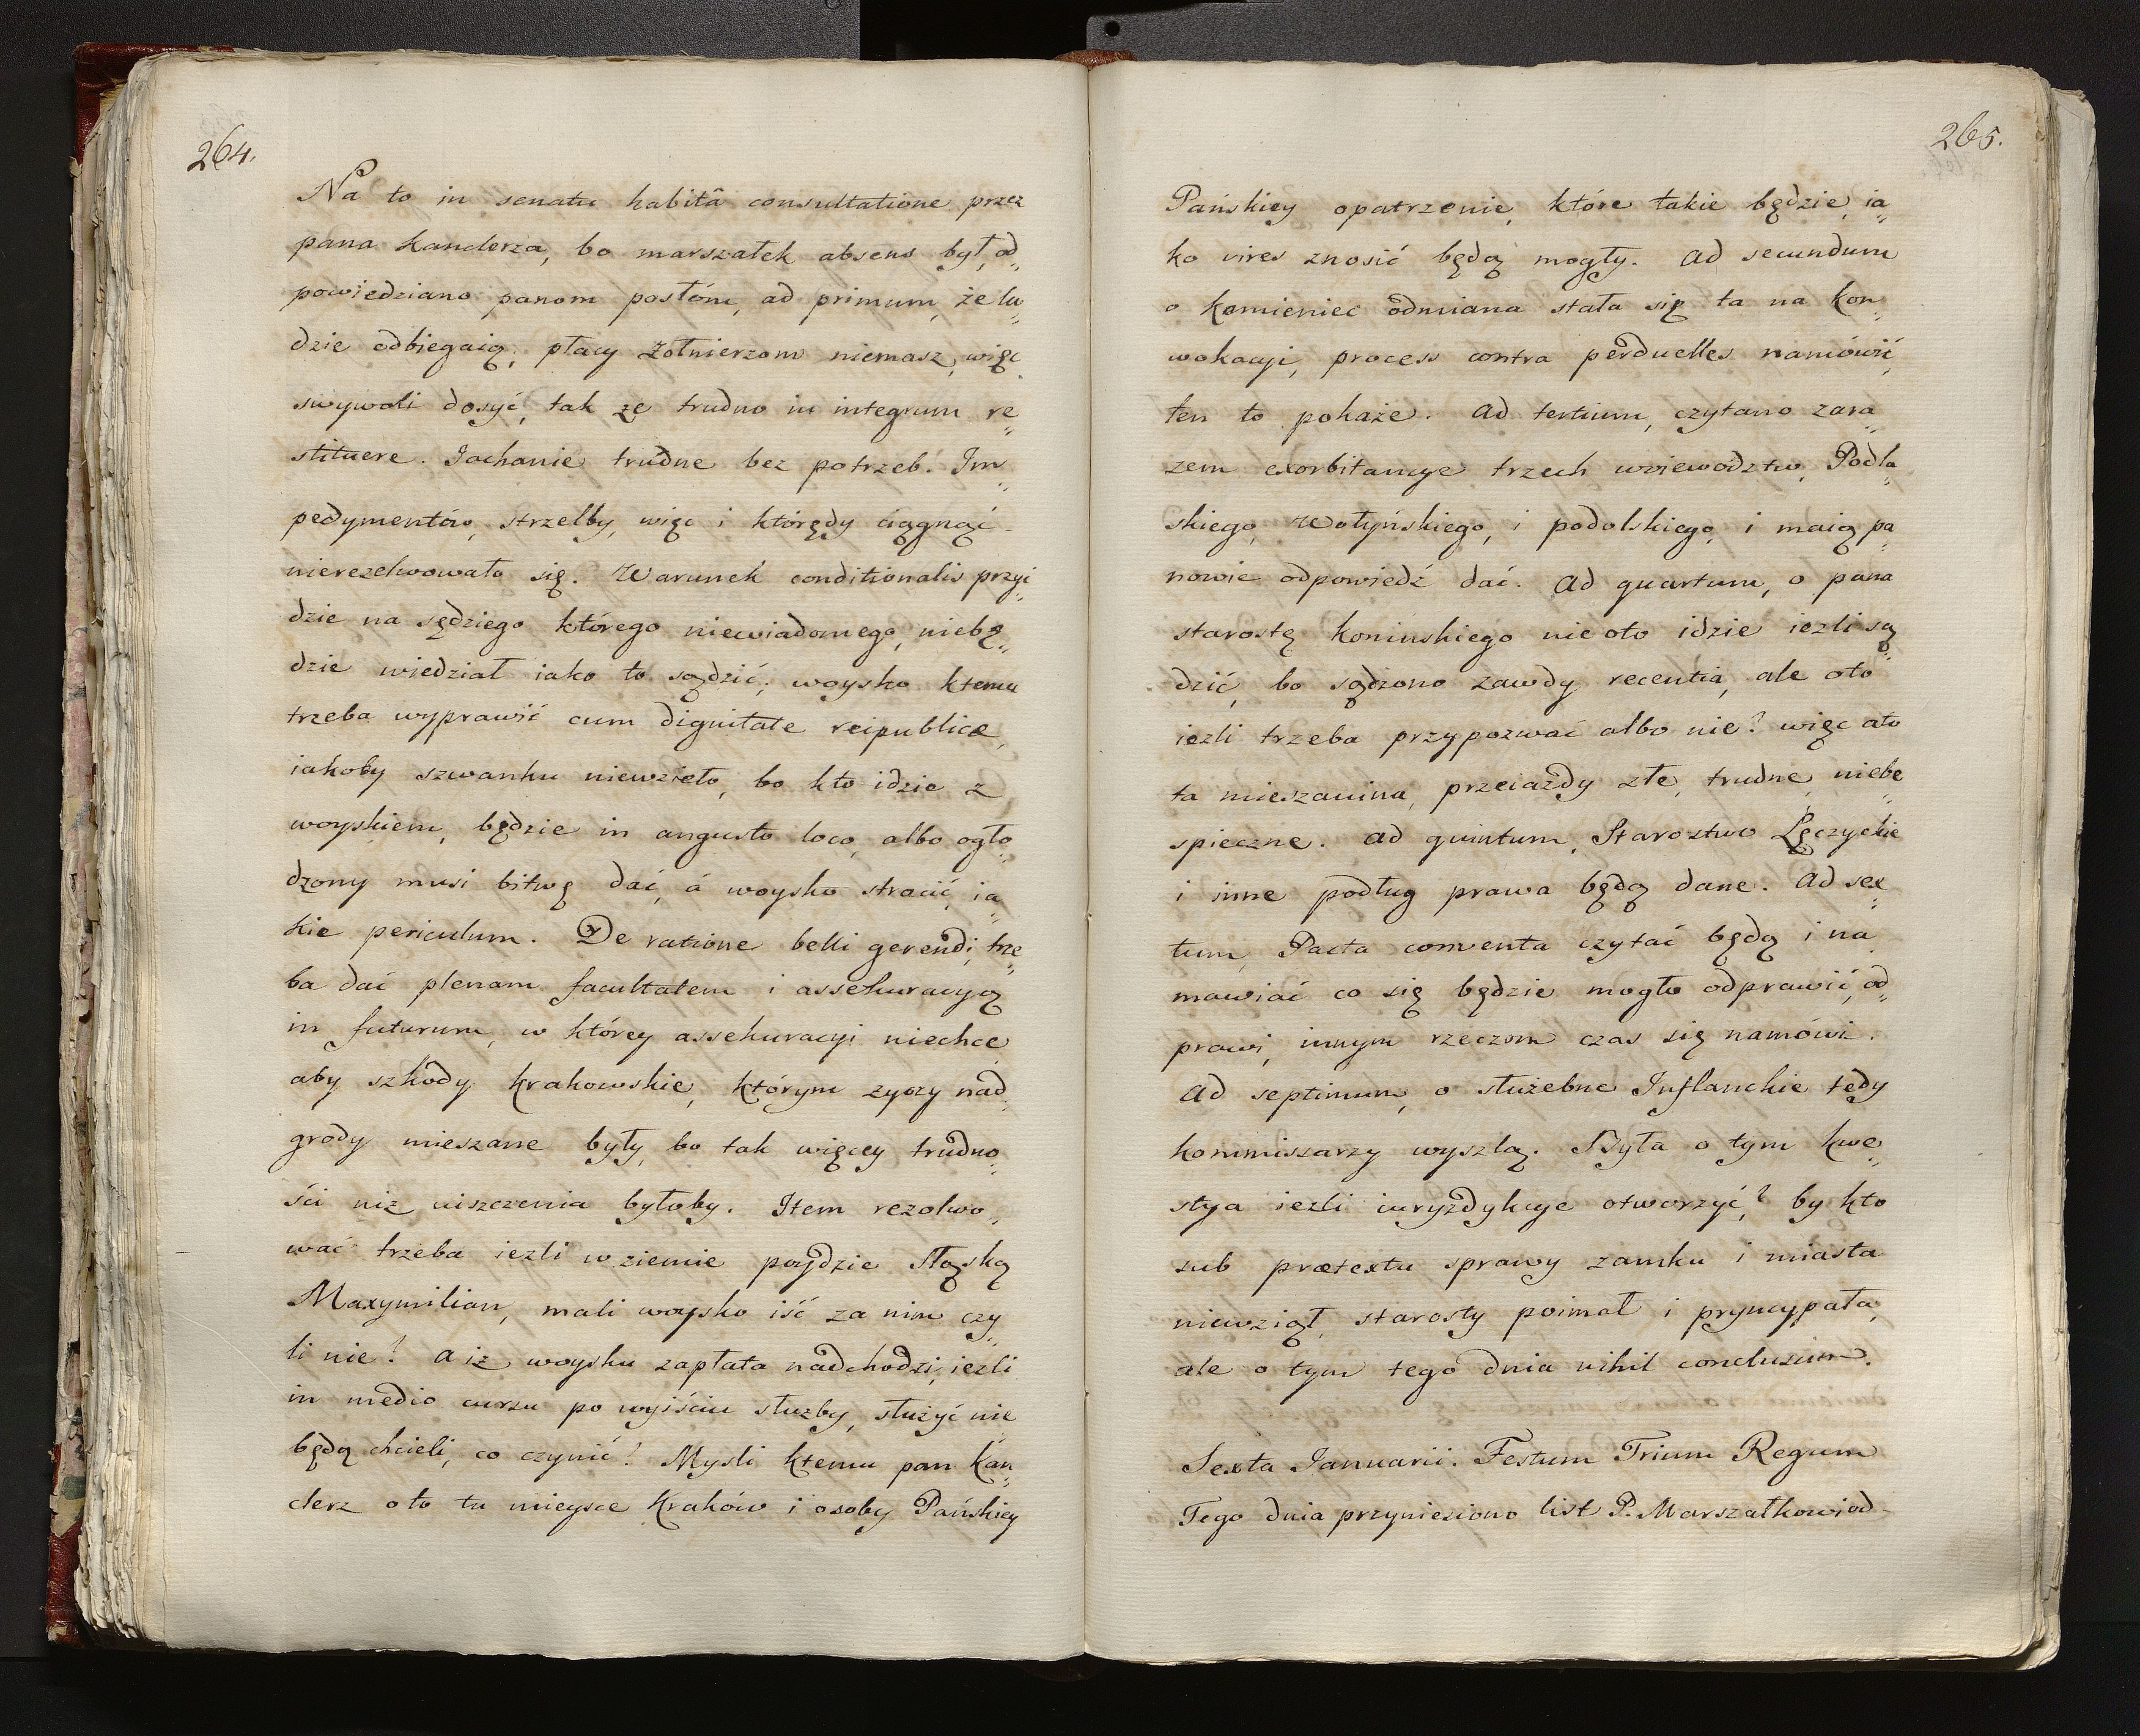 264.
Na to in senatu habitâ consultatione przez
pana kanclerza, bo marszałek absens był, od„
powiedziano panom posłóm, ad primum, że lu„
dzie odbiegaią, płacy żołnierzom niemasz, więc
swywoli dosyć, tak ze trudno in integrum re„
stituere. Jachanie trudne bez potrzeb. Im„
pedymentów, strzelby, więc i którędy ciągnąć
nierezelwowało się. Warunek conditionalis przyi„
dzie na sędziego którego niewiadomego, niebę„
dzie wiedział iako to sądzić, woysko ktemu
trzeba wyprawić cum dignitate reipublicæ,
iakoby szwanku niewzieło, bo kto idzie z
woyskiem, będzie in angusto loco, albo ogło„
dzony musi bitwę dać, á woysko stracić, ia„
kie periculum. De ratione belli gerendi, trze„
ba dać plenam facultatem i assekuracyą
in futurum, w którey assekuracyi niechce
aby szkody krakowskie, którym zyczy nad„
grody mieszane były, bo tak więcey trudno„
ści niz uiszczenia byłoby. Item rezolwo„
wać trzeba iezli w ziemie poydzie Sląską
Maxymilian, mali woysko iść za nim czy„
li nie? a iz woysku zapłata nadchodzi, iezli
in medio cursu po wyiściu służby, służyć nie
będą chcieli, co czynić? Mysli ktemu pan kan„
clerz oto tu mieysce Kraków i osoby Pańskiey
265.
Pańskiey opatrzenie, które takie będzie, ia„
ko vires znosić będą mogły. Ad secundum
o kamieniec odmiana stała się ta na kon„
wokacyi, process contra perduelles namówić,
ten to pokaże. Ad tertium, czytano zara„
zem exorbitancye trzech woiewodztw, Podla„
skiego, Wołyńskiego, i podolskiego, i maią pa„
nowie odpowiedź dać. Ad quartum, o pana
starostę koninskiego nie oto idzie iezli są„
dzić, bo sądzono zawdy recentia, ale oto
iezli trzeba przypozwać albo nie? więc ato
ta mieszanina, przeiazdy złe, trudne, niebe„
spieczne. Ad quintum, Starostwo Łęczyckie
i inne podług prawa będą dane. Ad sex„
tum, Pacta conventa czytać będą i na„
mawiać co się będzie mogło odprawić, od„
prawi, innym rzeczom czas się namówi.
Ad septimum, o służebne Inflanckie tedy
kommissarzy wyszlą. Była o tym kwe„
stya iezli iuryzdykcye otworzyć? by kto
sub prætextu sprawy zamku i miasta
niewziął, starosty poimał i pryncypała,
ale o tym tego dnia nihil conclusum.
Sexta Januarii. Festum Trium Regum
Tego dnia przyniesiono list P. Marszałkowi od